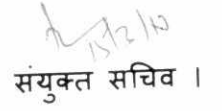 15/2/10
संयुक्त सचिव ।